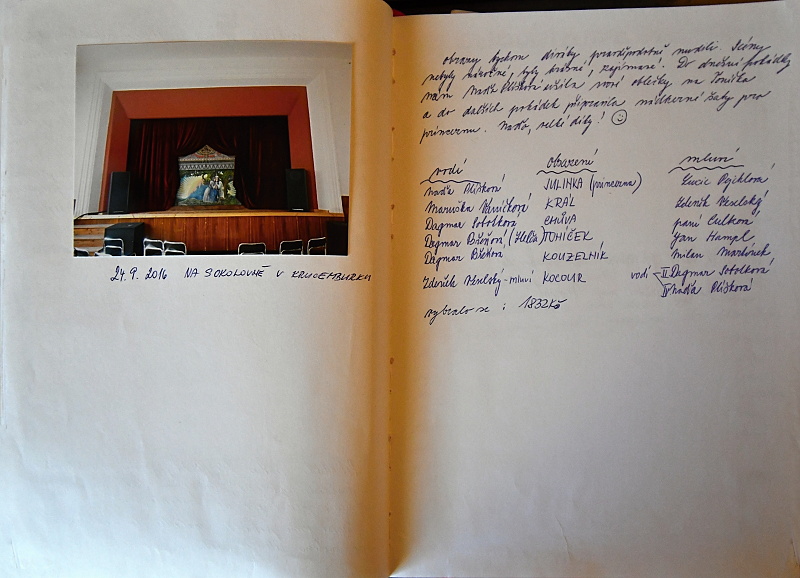 24.9. 2016 NA SOKOLOVNĚ V KRUCEMBURKU
obrazy bychom diváky pravděpodobně nudili. Scény
nebyly náročné, byly krásné, zajímavé. Do dnešní pohádky
nám Naďa Plíšková ušila nové oblečky na Toníčka
a do dalších pohádek připravila nádherné šaty pro
princeznu. Naďo, velké díky! ☺
vodí obsazení mluví
Naďa Plíšková JULINKA (princezna) Lucie Pejchlová
Maruška KRÁL Zdeněk Veselský
Dagmar Sobolková CHŮVA paní Culková
Dagmar Břeňová (Hella) TONÍČEK Jan Hampl
Dagmar Břeňová KOUZELNÍK Milan Martínek
Zdeněk Veselský - mluví KOCOUR vodí II Dagmar Sobolková
II Naďa Plíšková
vybralo se : 1832 Kč